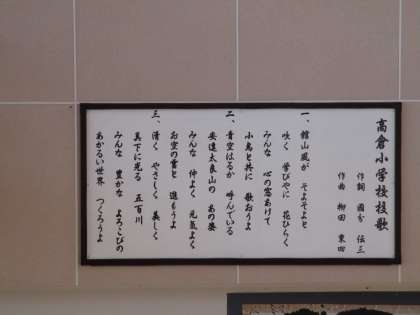 高倉小学校校歌
作詞 國分 伝三
作曲 柳田 東四
一、館山風が そよそよと
吹く 学びやに 花ひらく
みんな 心の窓あけて
小鳥と共に 歌おうよ
二、青空はるか 呼んでいる
安達太良山の あの姿
みんな 仲よく 元気よく
お空の雲と 進もうよ
三、清く やさしく 美しく
真下に光る 五百川
みんな 豊かな よろこびの
あかるい世界 つくろうよ